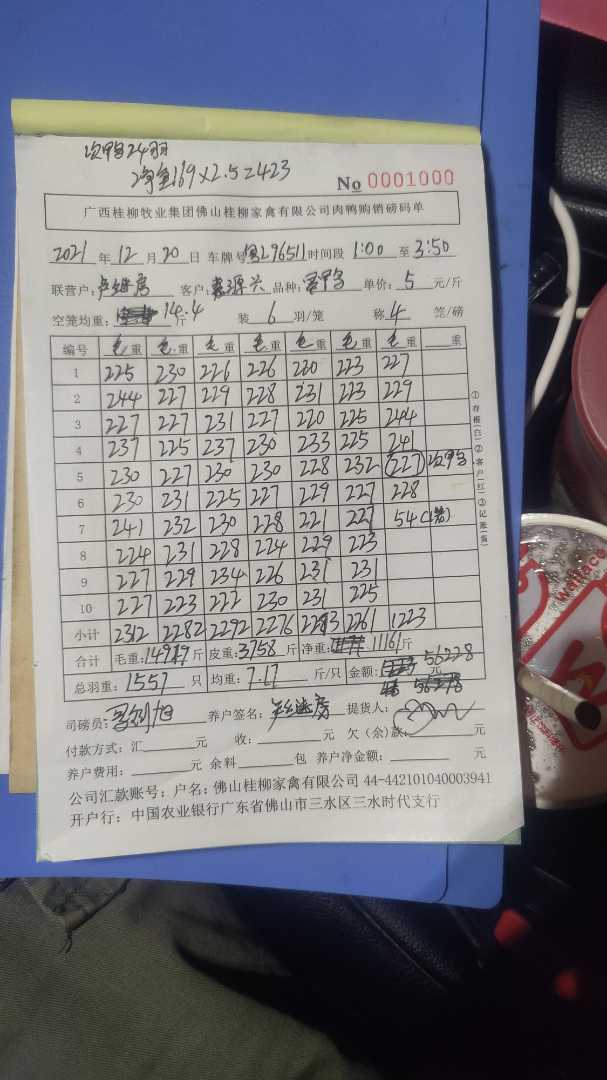 次鸭24羽
净重169×2.5=423
No 0001000
广西桂柳牧业集团佛山桂柳家禽有限公司肉鸭购销磅码单
2021 年 12 月 20 日 车牌号 296511 时间段 1:00 至 3:50
联营户: 客户: 源兴 品种: 单价: 5 元/斤
空笼均重: 14.4 斤 装 6 羽/笼 称 4 笼/磅
编号 毛重 毛重 毛重 毛重 毛重 毛重 毛重 重
1 225 230 226 226 220 223 227
2 244 227 229 228 231 223 229
3 227 227 231 227 220 225 244
4 237 225 237 230 233 225 241
5 230 227 230 230 228 232 (227) 次甲鸟
6 230 231 225 227 229 227 228
7 241 232 230 228 221 227 54(1笼)
8 224 231 228 224 229 223
9 227 229 234 226 231 231
10 227 223 222 230 231 225
小计 2312 2282 2292 2276 2261 1223
合计 毛重: 斤 皮重: 3758 斤 净重: 11161 斤
总羽重: 1557 只 均重: 7.17 斤/只 金额: 56228 元
56278
①存根(白)②客户(红)③记账(黄)
司磅员: 旭 养户签名: 提货人:
付款方式: 汇 元 收: 元 欠(余)款: 元
养户费用: 元 余料 包 养户净金额: 元
公司汇款账号: 户名: 佛山桂柳家禽有限公司 44-442101040003941
开户行: 中国农业银行广东省佛山市三水区三水时代支行
wallace